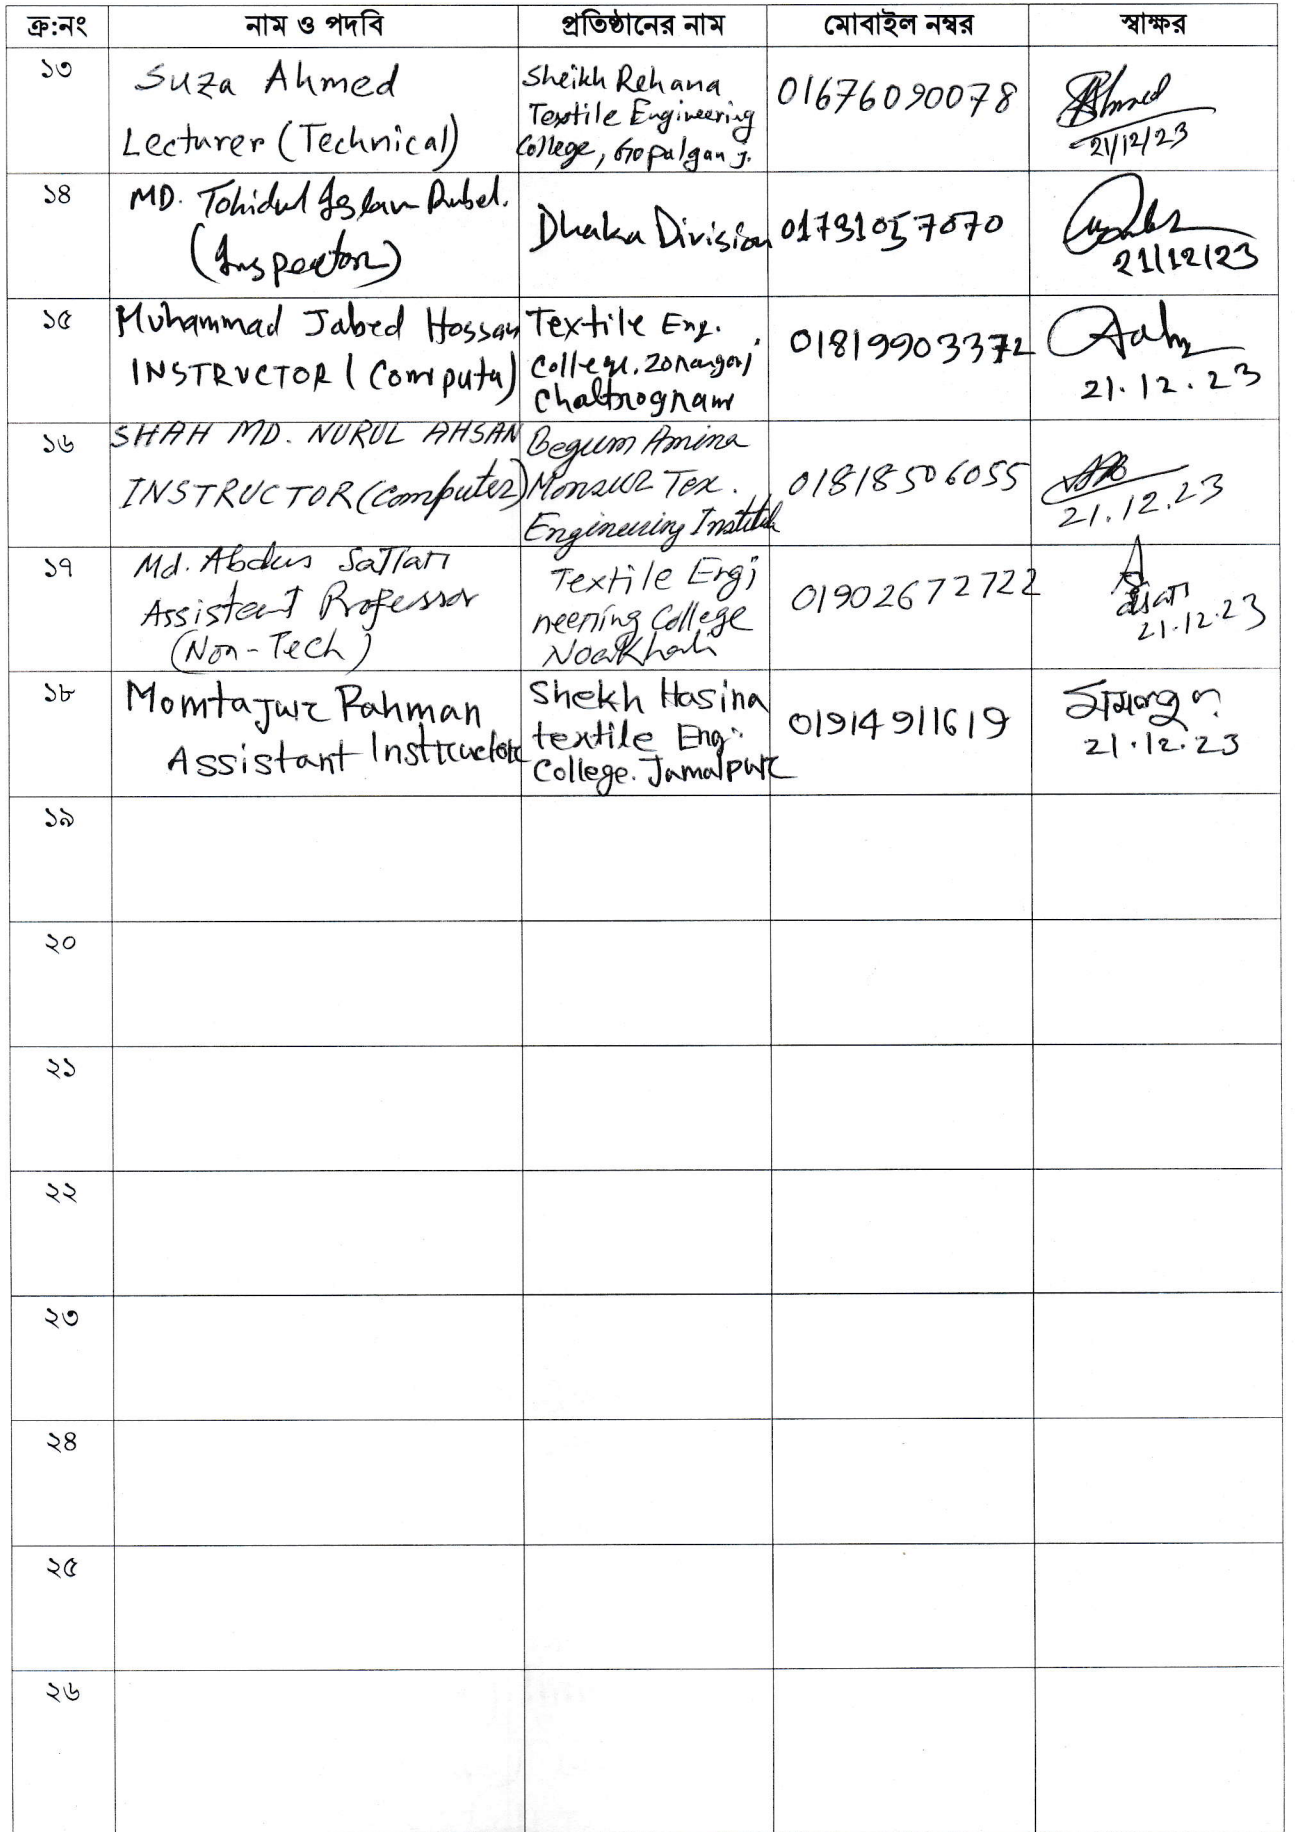 ক্র:নং নাম ও পদবি প্রতিষ্ঠানের নাম মোবাইল নম্বর স্বাক্ষর
১৩
Suza Ahmed
Lecturer (Technical)
Sheikh Rehana
Textile Engineering
College, Gopalganj.
01676090078
Ahmed
21/12/23
১৪
MD. Tohidul Islam Rubel.
(Inspector)
Dhaka Division
01731057070
21/12/23
১৫
Muhammad Jabed Hossan
INSTRUCTOR (Computer)
Textile Eng.
College,
01819903372
21.12.23
১৬
SHAH MD. NURUL AHSAN
INSTRUCTOR (Computer)
Begum Amina
Monsur Tex.
Engineering Institute
01818506055
21.12.23
১৭
Md. Abdus Sattar
Assistant Professor
(Non-Tech)
Textile Engi
neering College
Noakhali
01902672722
21.12.23
১৮
Momtajur Rahman
Assistant Instructor
Shekh Hasina
textile Eng.
College. Jamalpur
01914911619
21.12.23
১৯
২০
২১
২২
২৩
২৪
২৫
২৬